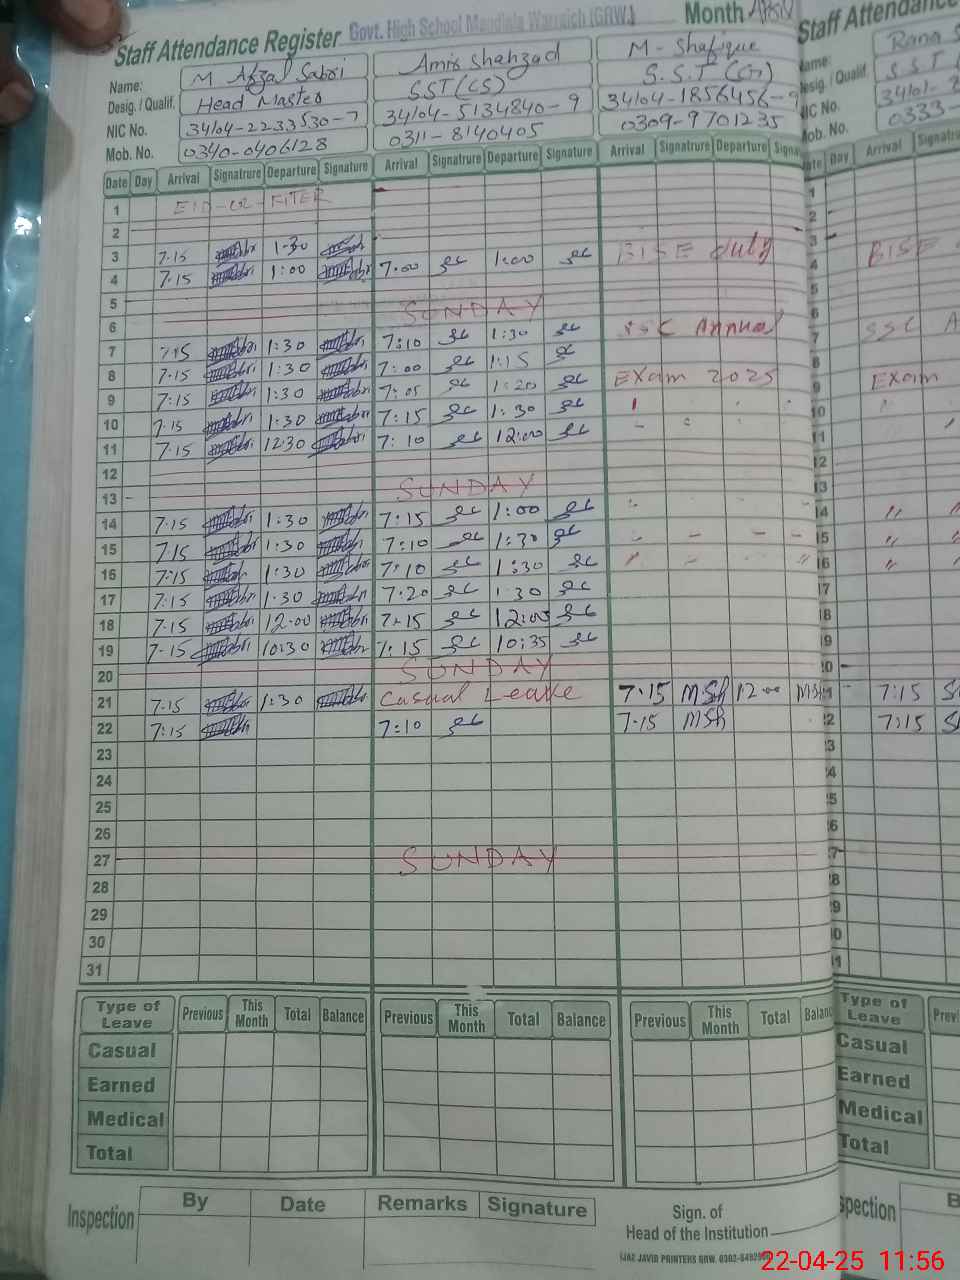 Staff Attendance Register Govt. High School Mandiala Warraich (GRW.) Month April
Name: M Afzal Sabri Amir Shahzad M- Shafique
Desig. / Qualif. Head Master SST (CS) S.S.T (G)
NIC No. 34104-2233530-7 34104-5134840-9 34104-1856456-9
Mob. No. 0340-0406128 0311-8140405 0309-9701235
Date Day Arrival Signatrure Departure Signature Arrival Signatrure Departure Signature Arrival Signatrure Departure
1 EID-UL-FITER
2
3 7.15 1.30 BISE duty
4 7.15 1:00 7.00 1:00
5
6 SUNDAY
7 7:15 1:30 7:10 1:30 SSC Annual
8 7.15 1:30 7:00 1:15
9 7:15 1:30 7:05 1:20 Exam 2025
10 7.15 1:30 7:15 1:30
11 7.15 12:30 7:10 12:00
12
13 SUNDAY
14 7.15 1:30 7:15 1:00
15 7.15 1:30 7:10 1:30
16 7:15 1:30 7:10 1:30
17 7.15 1.30 7.20 1.30
18 7.15 12.00 7.15 12:00
19 7.15 10:30 7:15 10:35
20 SUNDAY
21 7.15 1:30 Casual Leave 7.15 MSh 12.00 MSh
22 7:15 7:10 7.15 MSh
23
24
25
26
27 SUNDAY
28
29
30
31
Type of Leave Previous This Month Total Balance Previous This Month Total Balance Previous This Month Total Balance
Casual
Earned
Medical
Total
Inspection By Date Remarks Signature Sign. of
Head of the Institution
Staff Attendance
Rana
SST
34101-
0333-
Day Arrival
BISE
SSC
Exam
7:15
7:15
Type of Leave
Casual
Earned
Medical
Total
22-04-25 11:56